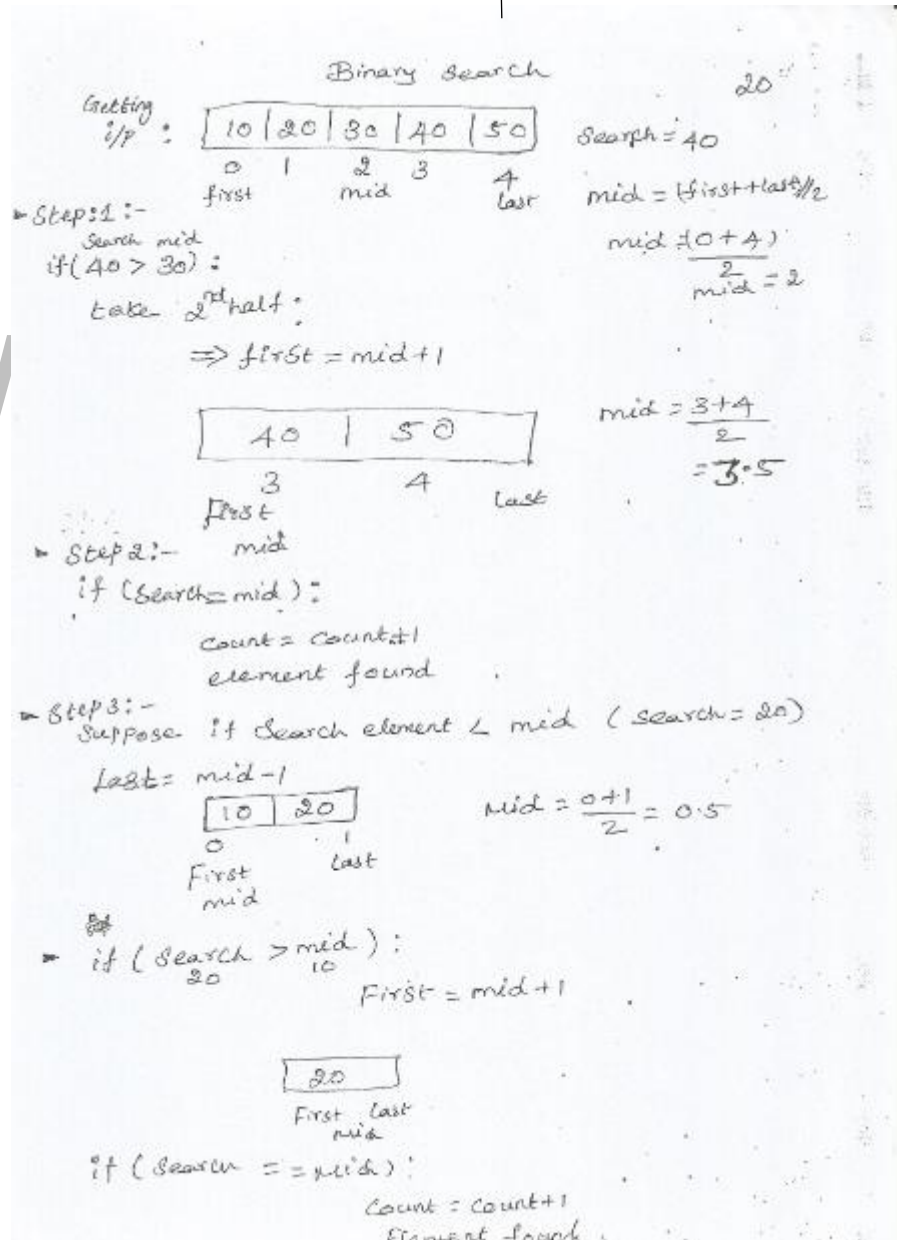 Binary Search
20
Getting
i/p : 10 | 20 | 30 | 40 | 50
Search = 40
0 1 2 3 4
first mid last
mid = (first+last)//2
Step:1 :-
Search mid
if(40 > 30) :
mid = (0+4)
2
mid = 2
take 2nd half :
=> first = mid+1
40 | 50
mid = 3+4
2
= 3.5
3 4
First last
mid
Step 2:-
if (Search=mid) :
count = count+1
element found
Step 3:-
Suppose if Search element < mid (search = 20)
Last = mid-1
10 | 20
mid = 0+1
2
= 0.5
0 1
First last
mid
if (Search > mid) :
20 10
First = mid+1
20
First last
mid
if (Search == mid) :
count = count+1
Element found